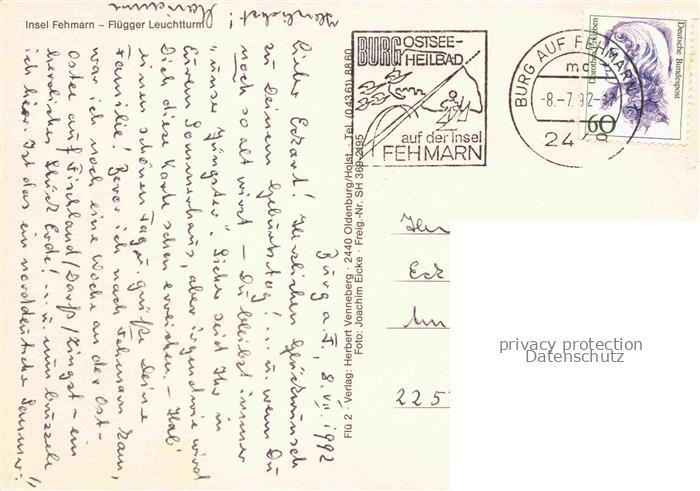 Insel Fehmarn – Flügger Leuchtturm
Burg a. F., 8. VII. 1992
Lieber Eckart! Herzlichen Glückwunsch
zu Deinem Geburtstag! ... u. wenn Du
noch so alt wirst – Du bleibst immer
"unser Jüngster". Sicher seid Ihr in
Eurem Sommerhaus, aber irgendwie wird
Dich diese Karte schon erreichen. – Hab'
einen schönen Tag u. grüße Deine
Familie! Bevor ich nach Fehmarn kam,
war ich noch eine Woche an der Ost-
Ostsee auf Fischland/Darß/Zingst – ein
herrliches Stück Erde! ... u. nun
ich hier. Ist das ein norddeutscher Sommer!!
Herzlichst!
Flü 2 · Verlag: Herbert Venneberg · 2440 Oldenburg/Holst. · Tel. (04361) 8860
Foto: Joachim Eicke · Freig.-Nr. SH 369-2195
BURG OSTSEE-
HEILBAD
auf der Insel
FEHMARN
BURG AUF FEHMARN
-8.-7.92-
24
Deutsche Bundespost
Dorothea Erxleben
60
Eck
Am
225
privacy protection
Datenschutz